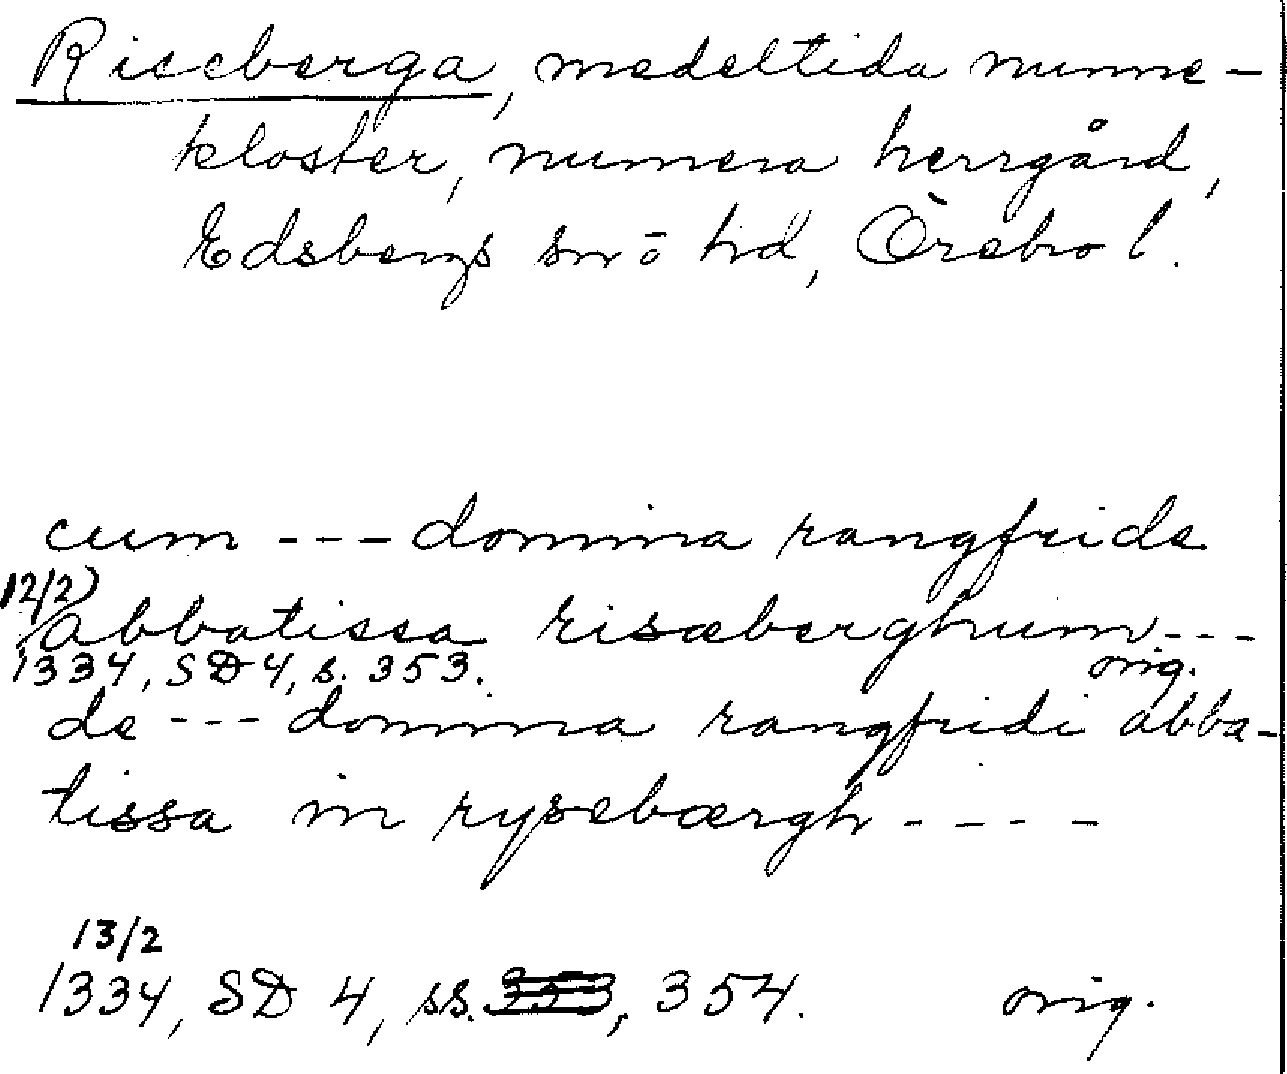 Riseberga, medeltida nunne-
kloster, numera herrgård,
Edsbergs sn ō hd, Örebro l.
cum --- domina rangfride
12/2)
abbatissa risæberghum---
1334, SD 4, s. 353. orig.
de --- domina rangfridi abba-
tissa in rysebærgh ----
13/2
1334, SD 4, ss. 353, 354. orig.